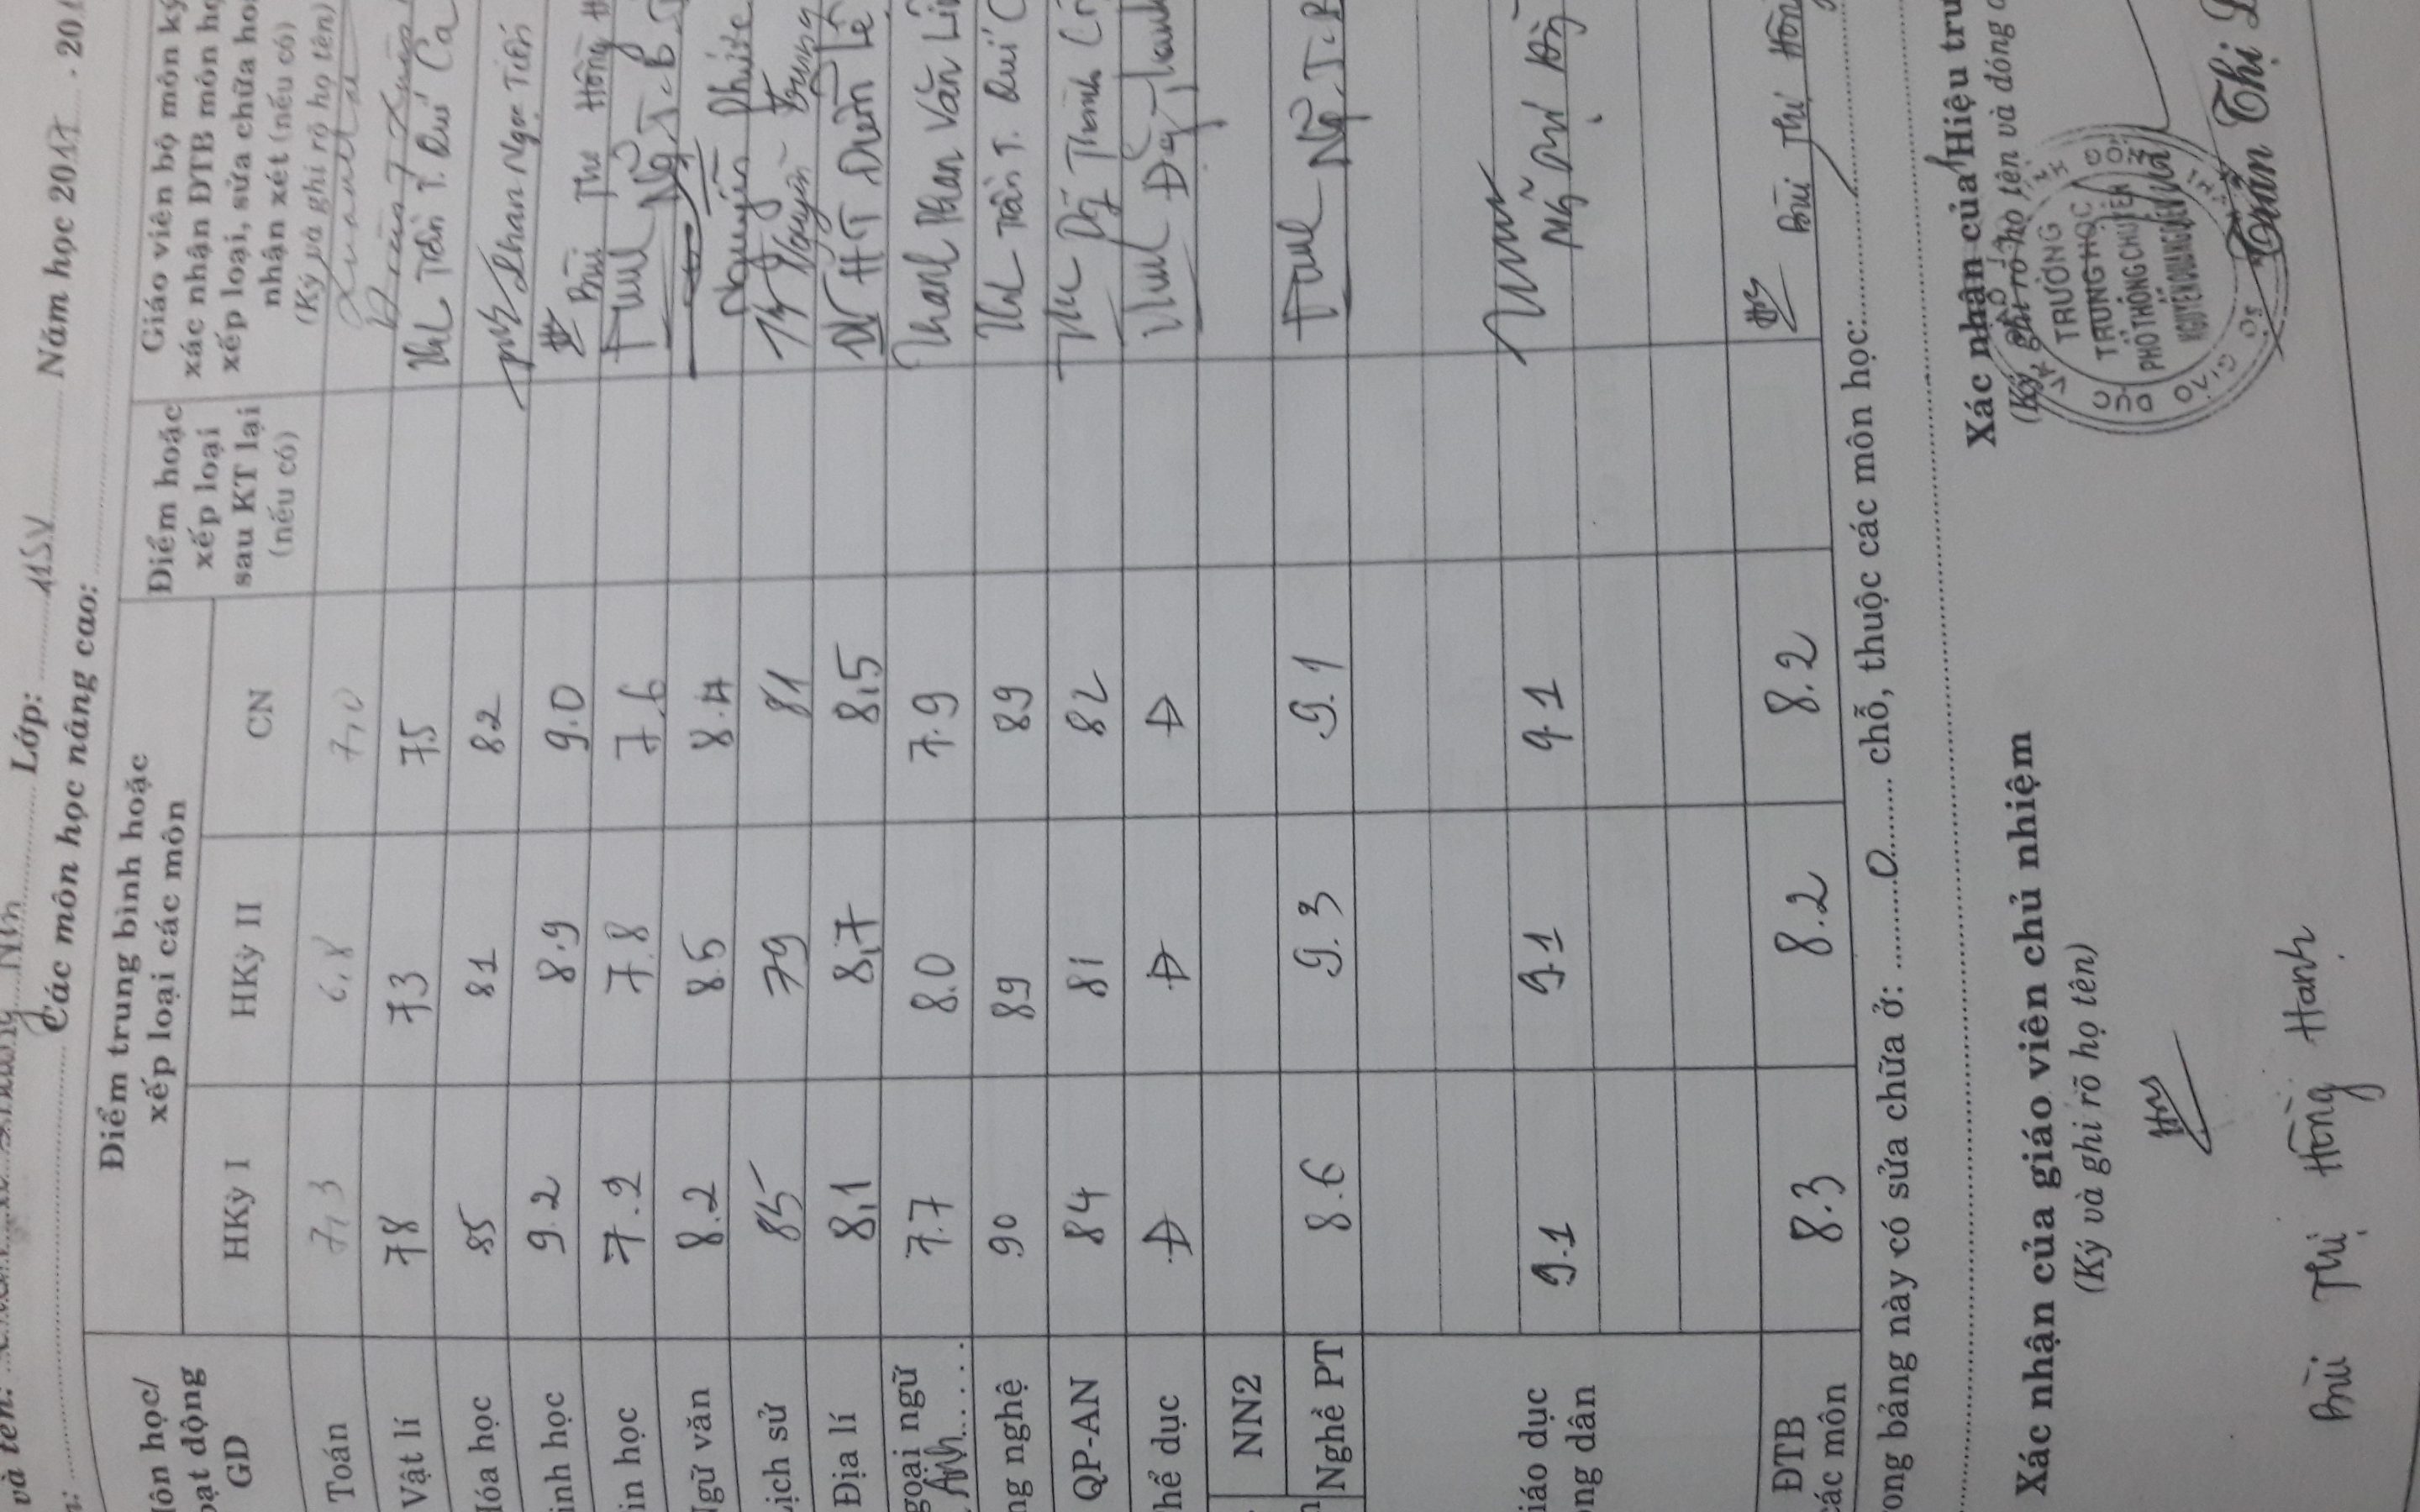 và tên: Lớp: 11SV Năm học 2017 - 201
Các môn học nâng cao:
Môn học/
hoạt động
GD
Điểm trung bình hoặc
xếp loại các môn
Điểm hoặc
xếp loại
sau KT lại
(nếu có)
Giáo viên bộ môn ký
xác nhận ĐTB môn học
xếp loại, sửa chữa
nhận xét (nếu có)
(Ký và ghi rõ họ tên)
HKỳ I HKỳ II CN
Toán 7,3 6,8 7,0
Vật lí 78 73 75 Trần T. Quí Ca
Hóa học 85 81 82 Phan Ngọc Tiến
inh học 9.2 8.9 9.0 Bùi Thị Hồng
in học 7.2 7.8 7.6
Ngữ văn 8.2 8.5 8.4 Nguyễn
ịch sử 85 79 81
Địa lí 8,1 8,7 8,5
goại ngữ
Anh 7.7 8.0 7.9 Phan Văn
ng nghệ 90 89 89 Trần T. Quí C
QP-AN 84 81 82
hể dục Đ Đ Đ
NN2
Nghề PT 8.6 9.3 9.1
iáo dục
ông dân 9.1 9.1 9.1
ĐTB
các môn 8.3 8.2 8.2 Bùi Thị Hồng
rong bảng này có sửa chữa ở: 0 chỗ, thuộc các môn học:
Xác nhận của giáo viên chủ nhiệm
(Ký và ghi rõ họ tên)
Bùi Thị Hồng Hạnh
Xác nhận của Hiệu trư
(Ký, ghi rõ họ tên và đóng d
TRƯỜNG
TRUNG HỌC
PHỔ THÔNG CHUYÊN
NGUYỄN QUANG DIÊU
Trần Thị